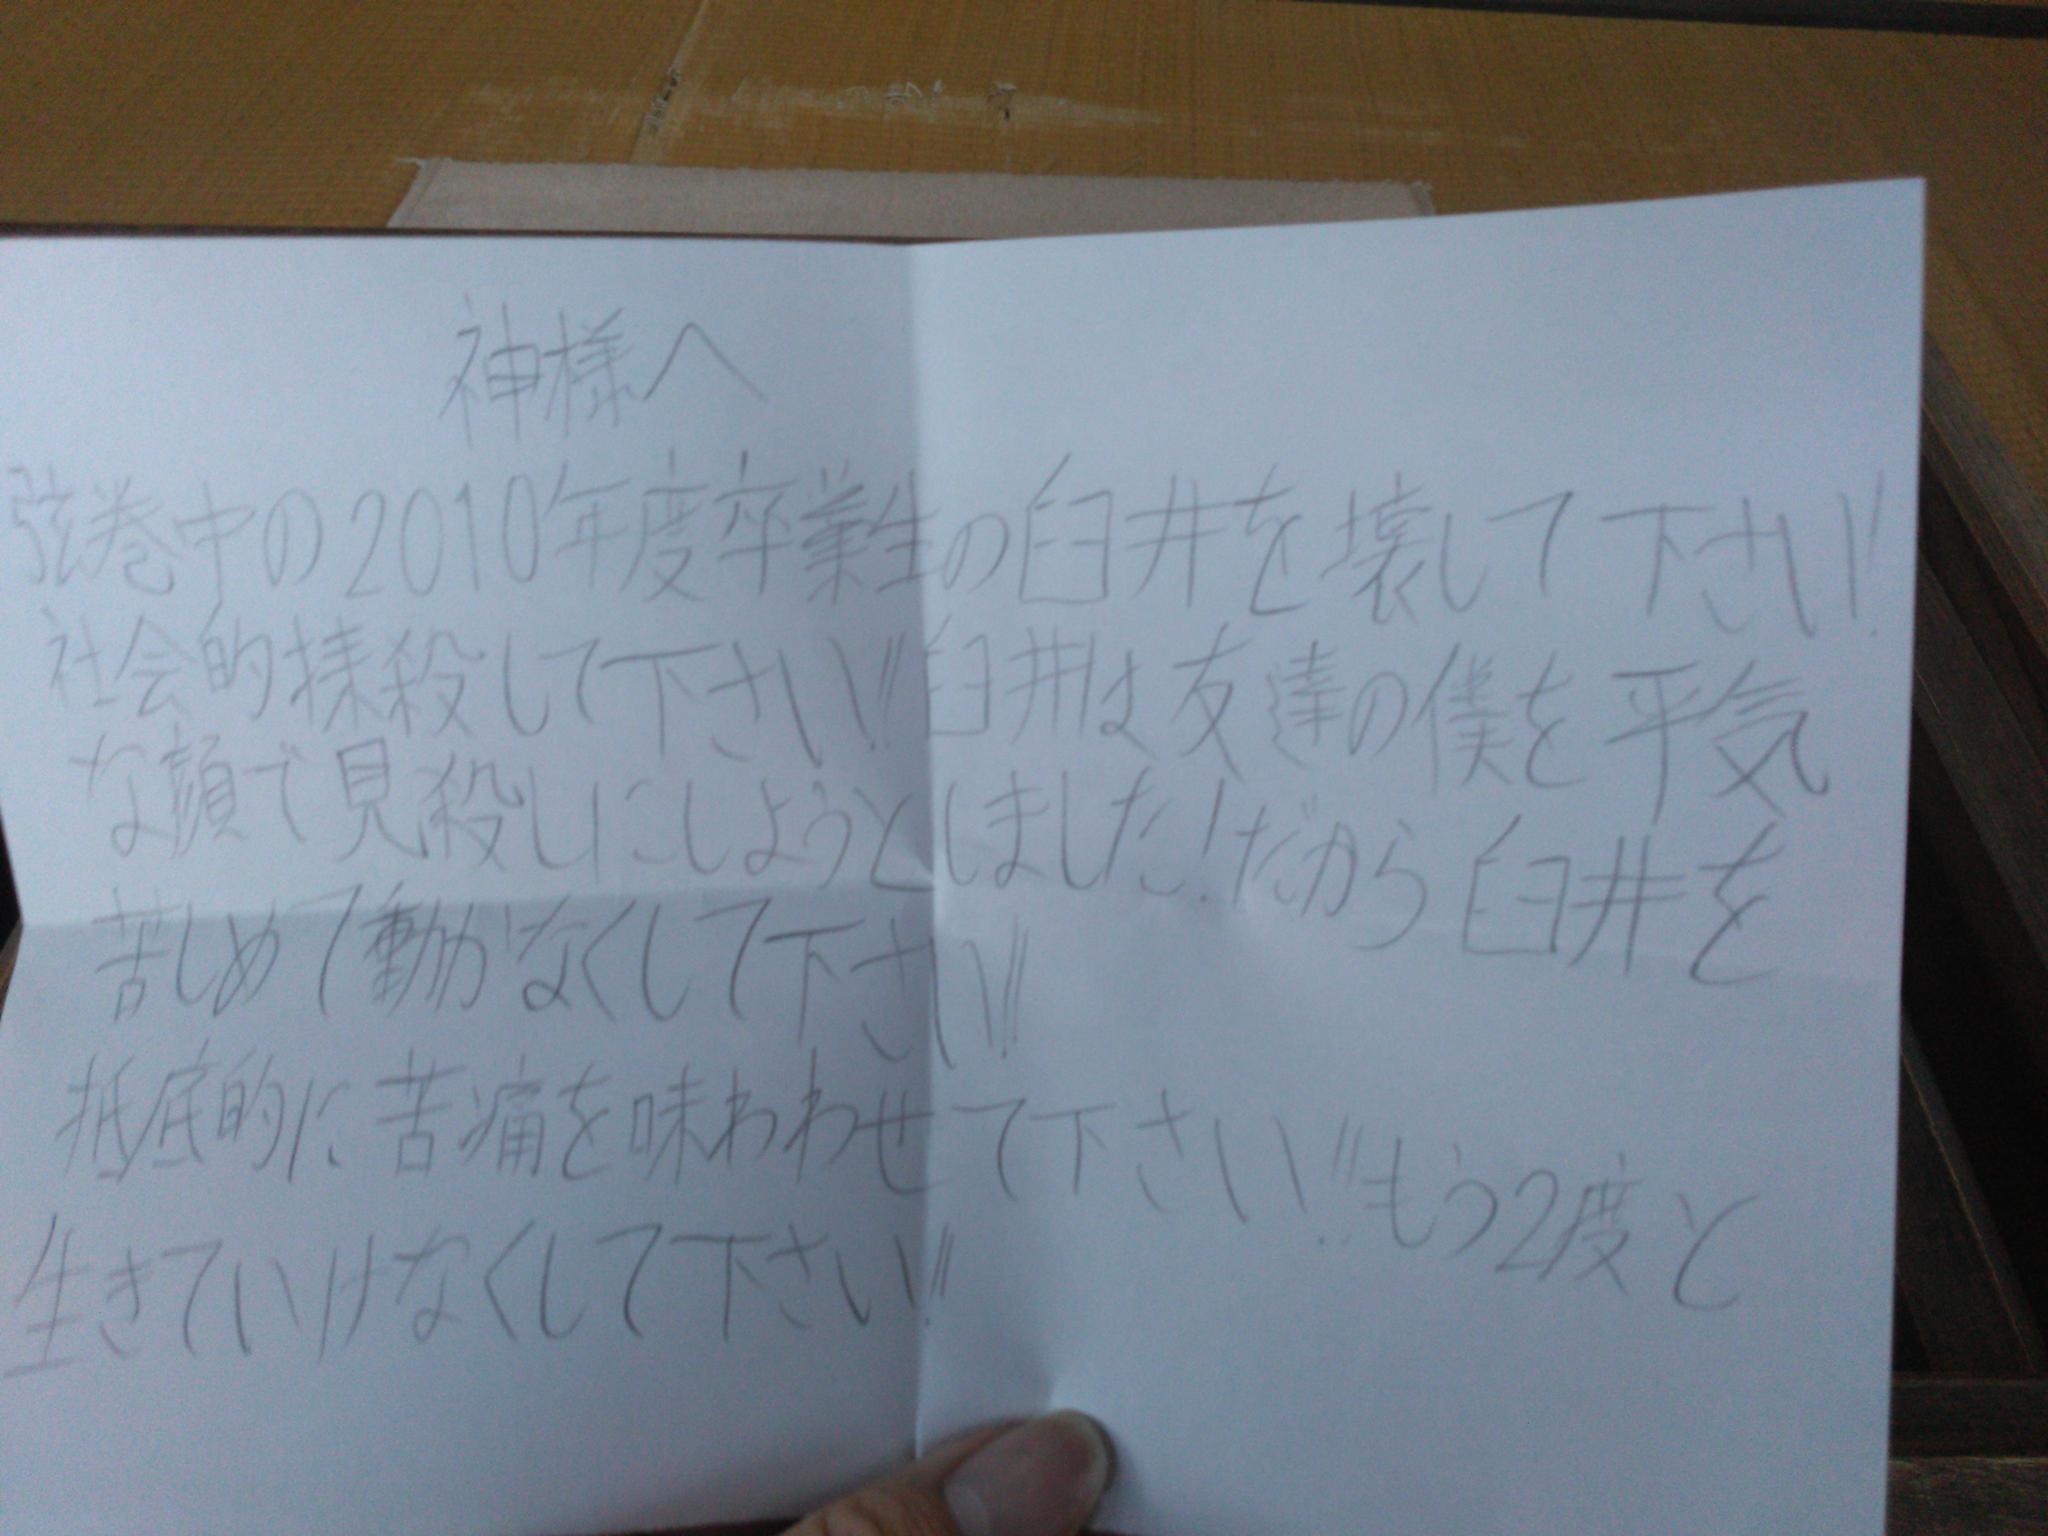 神様へ
弦巻中の2010年度卒業生の臼井を壊して下さい!
社会的抹殺して下さい!!臼井は友達の僕を平気
な顔で見殺しにしようとしました!だから臼井を
苦しめて動かなくして下さい!!
抵底的に苦痛を味わわせて下さい!!もう2度と
生きていけなくして下さい!!